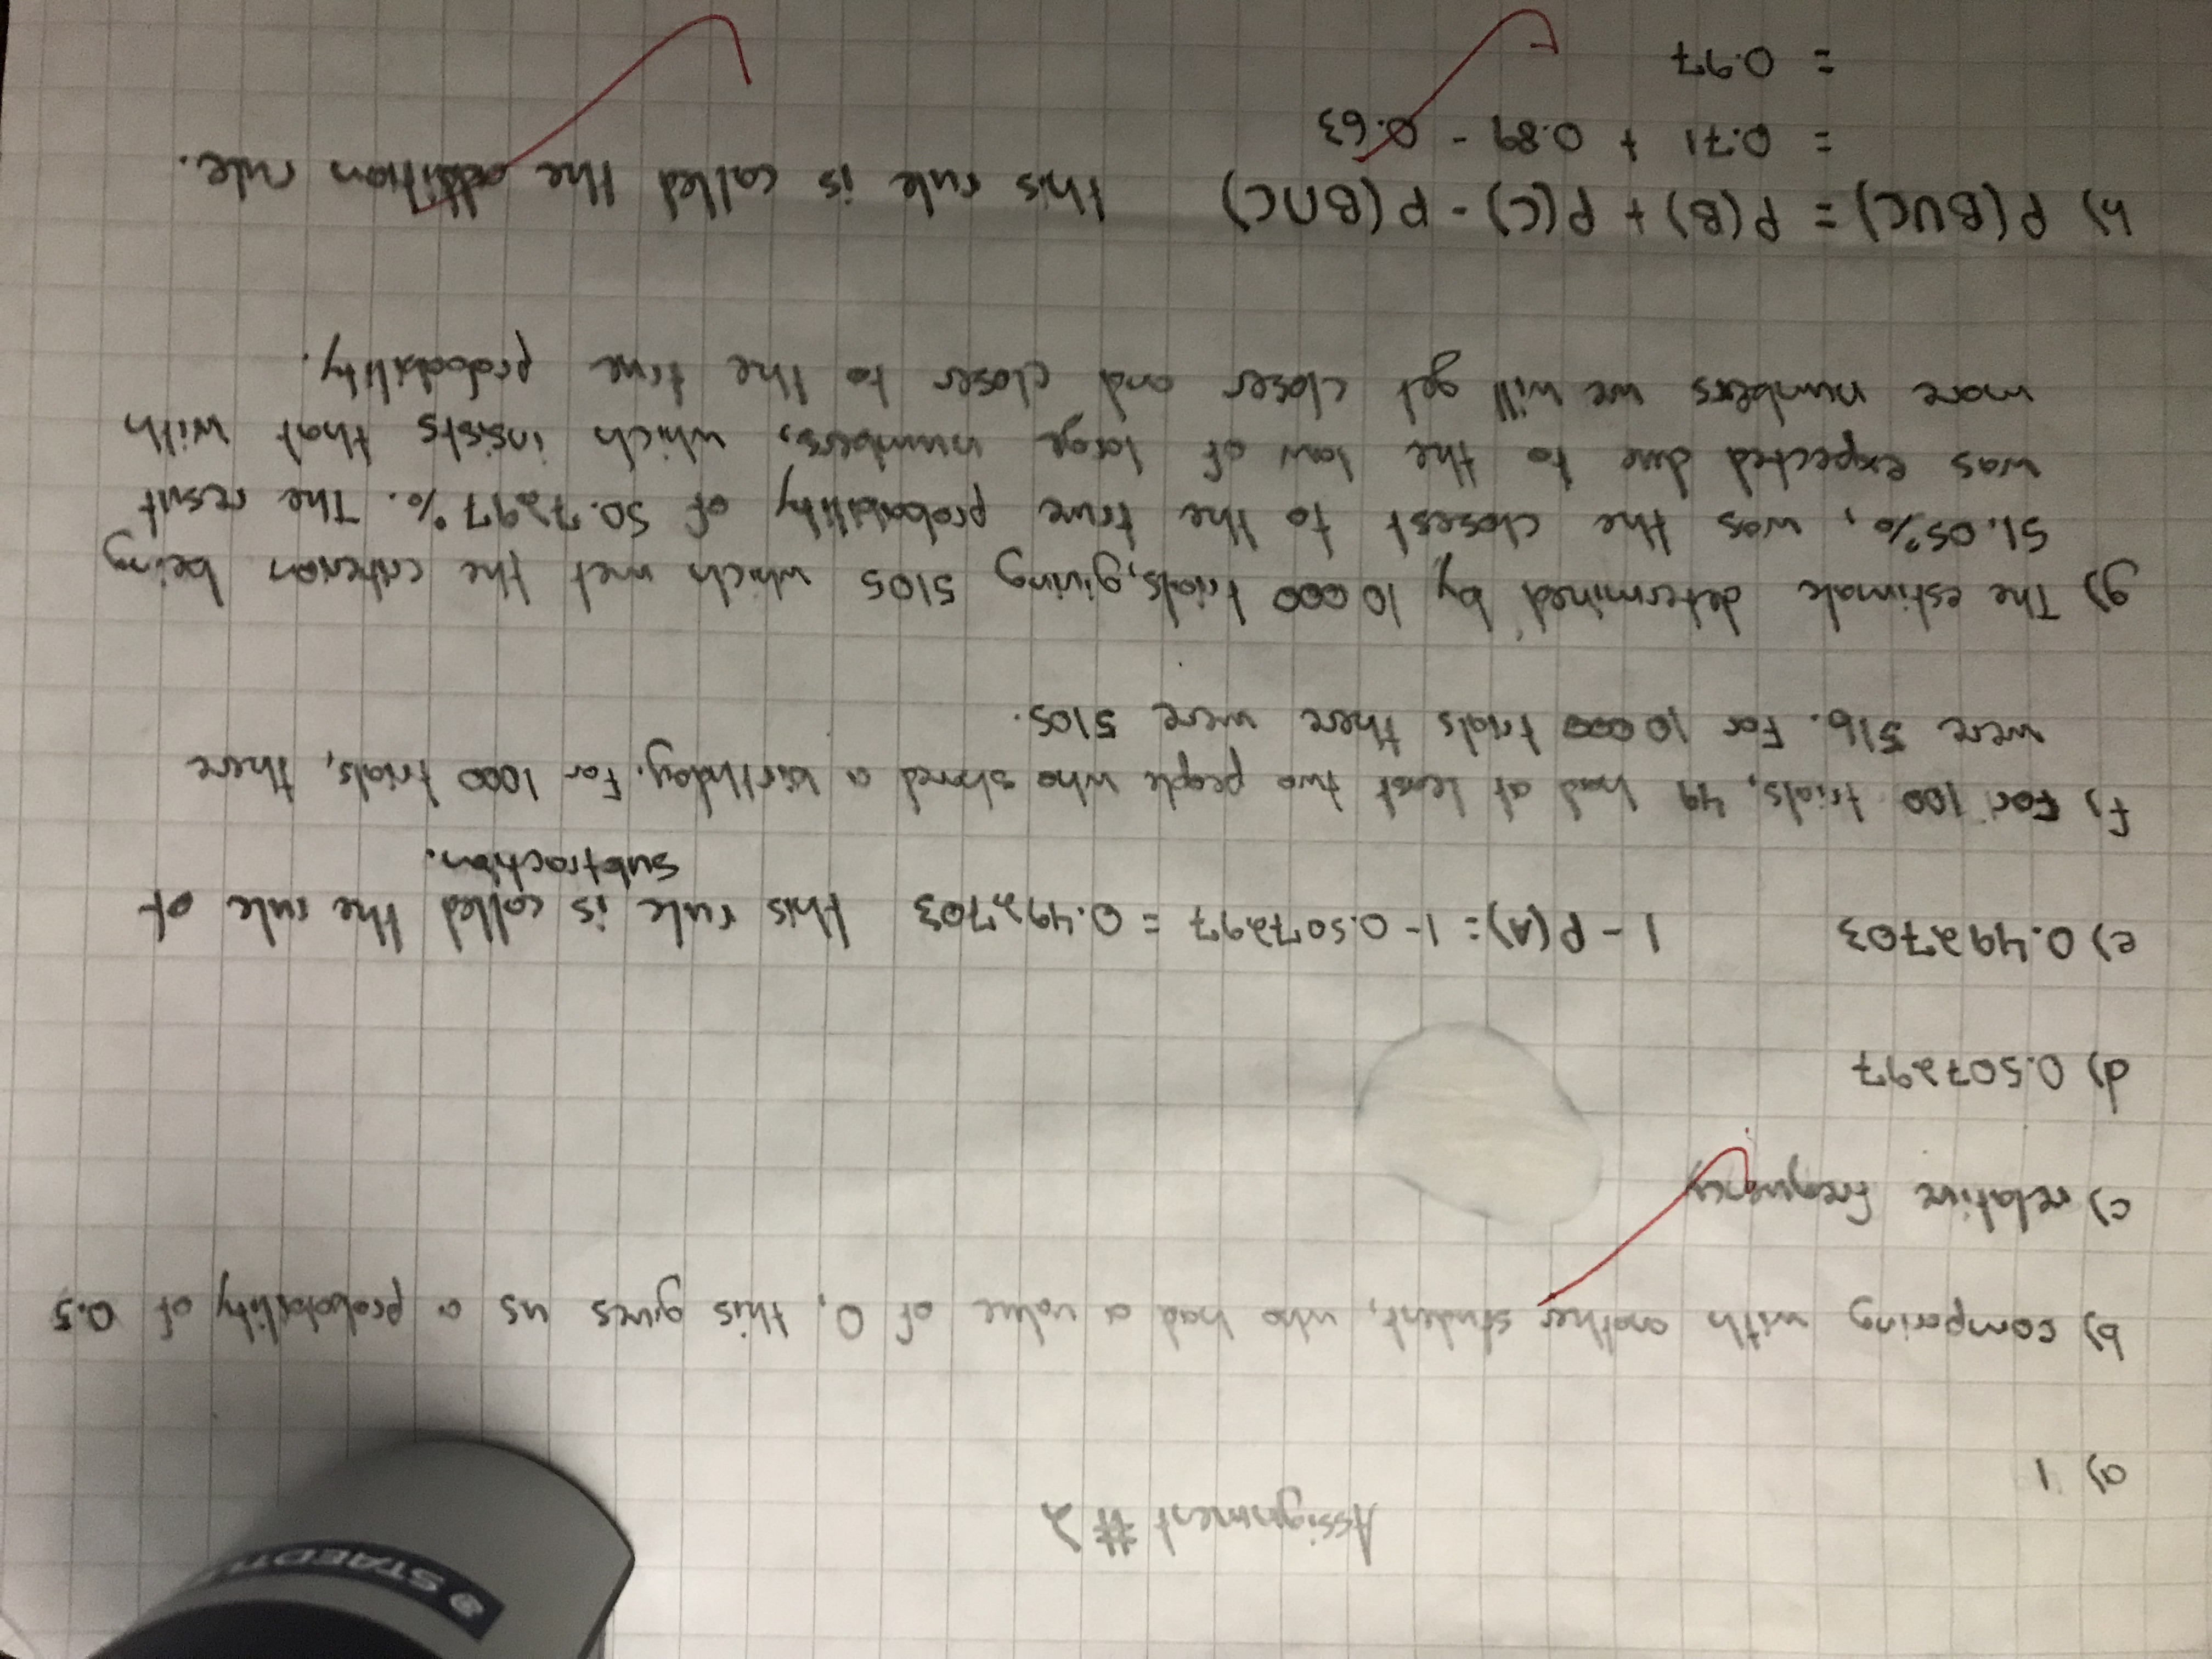 STAEDTL
Assignment #2
a) 1
b) comparing with another student, who had a value of 0, this gives us a probability of 0.5
c) relative frequency
d) 0.507297
e) 0.492703 1 - P(A) = 1 - 0.507297 = 0.492703 this rule is called the rule of
subtraction.
f) For 100 trials, 49 had at least two people who shared a birthday. For 1000 trials, there
were 516. For 10 000 trials there were 5105.
g) The estimate determined by 10 000 trials, giving 5105 which met the criterion being
51.05%, was the closest to the true probability of 50.7297%. The result
was expected due to the law of large numbers, which insists that with
more numbers we will get closer and closer to the true probability.
h) P(BUC) = P(B) + P(C) - P(B∩C) this rule is called the addition rule.
= 0.71 + 0.89 - 0.63
= 0.97